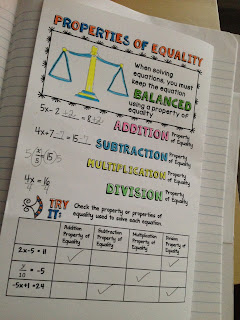 PROPERTIES OF EQUALITY
When solving
equations, you must
keep the equation
BALANCED
using a property of
equality
5x - 2 +2 = 8 +2
ADDITION Property of Equality
4x + 7 -7 = 15 -7
SUBTRACTION Property of Equality
5(x/5) = (15)5
MULTIPLICATION Property of Equality
4x = 16
4 4
DIVISION Property of Equality
TRY IT:
Check the property or properties of
equality used to solve each equation.
Addition Property of Equality
Subtraction Property of Equality
Multiplication Property of Equality
Division Property of Equality
2x-5 = 11 ✓
= -5 ✓
-5x+1 = 24 ✓ ✓